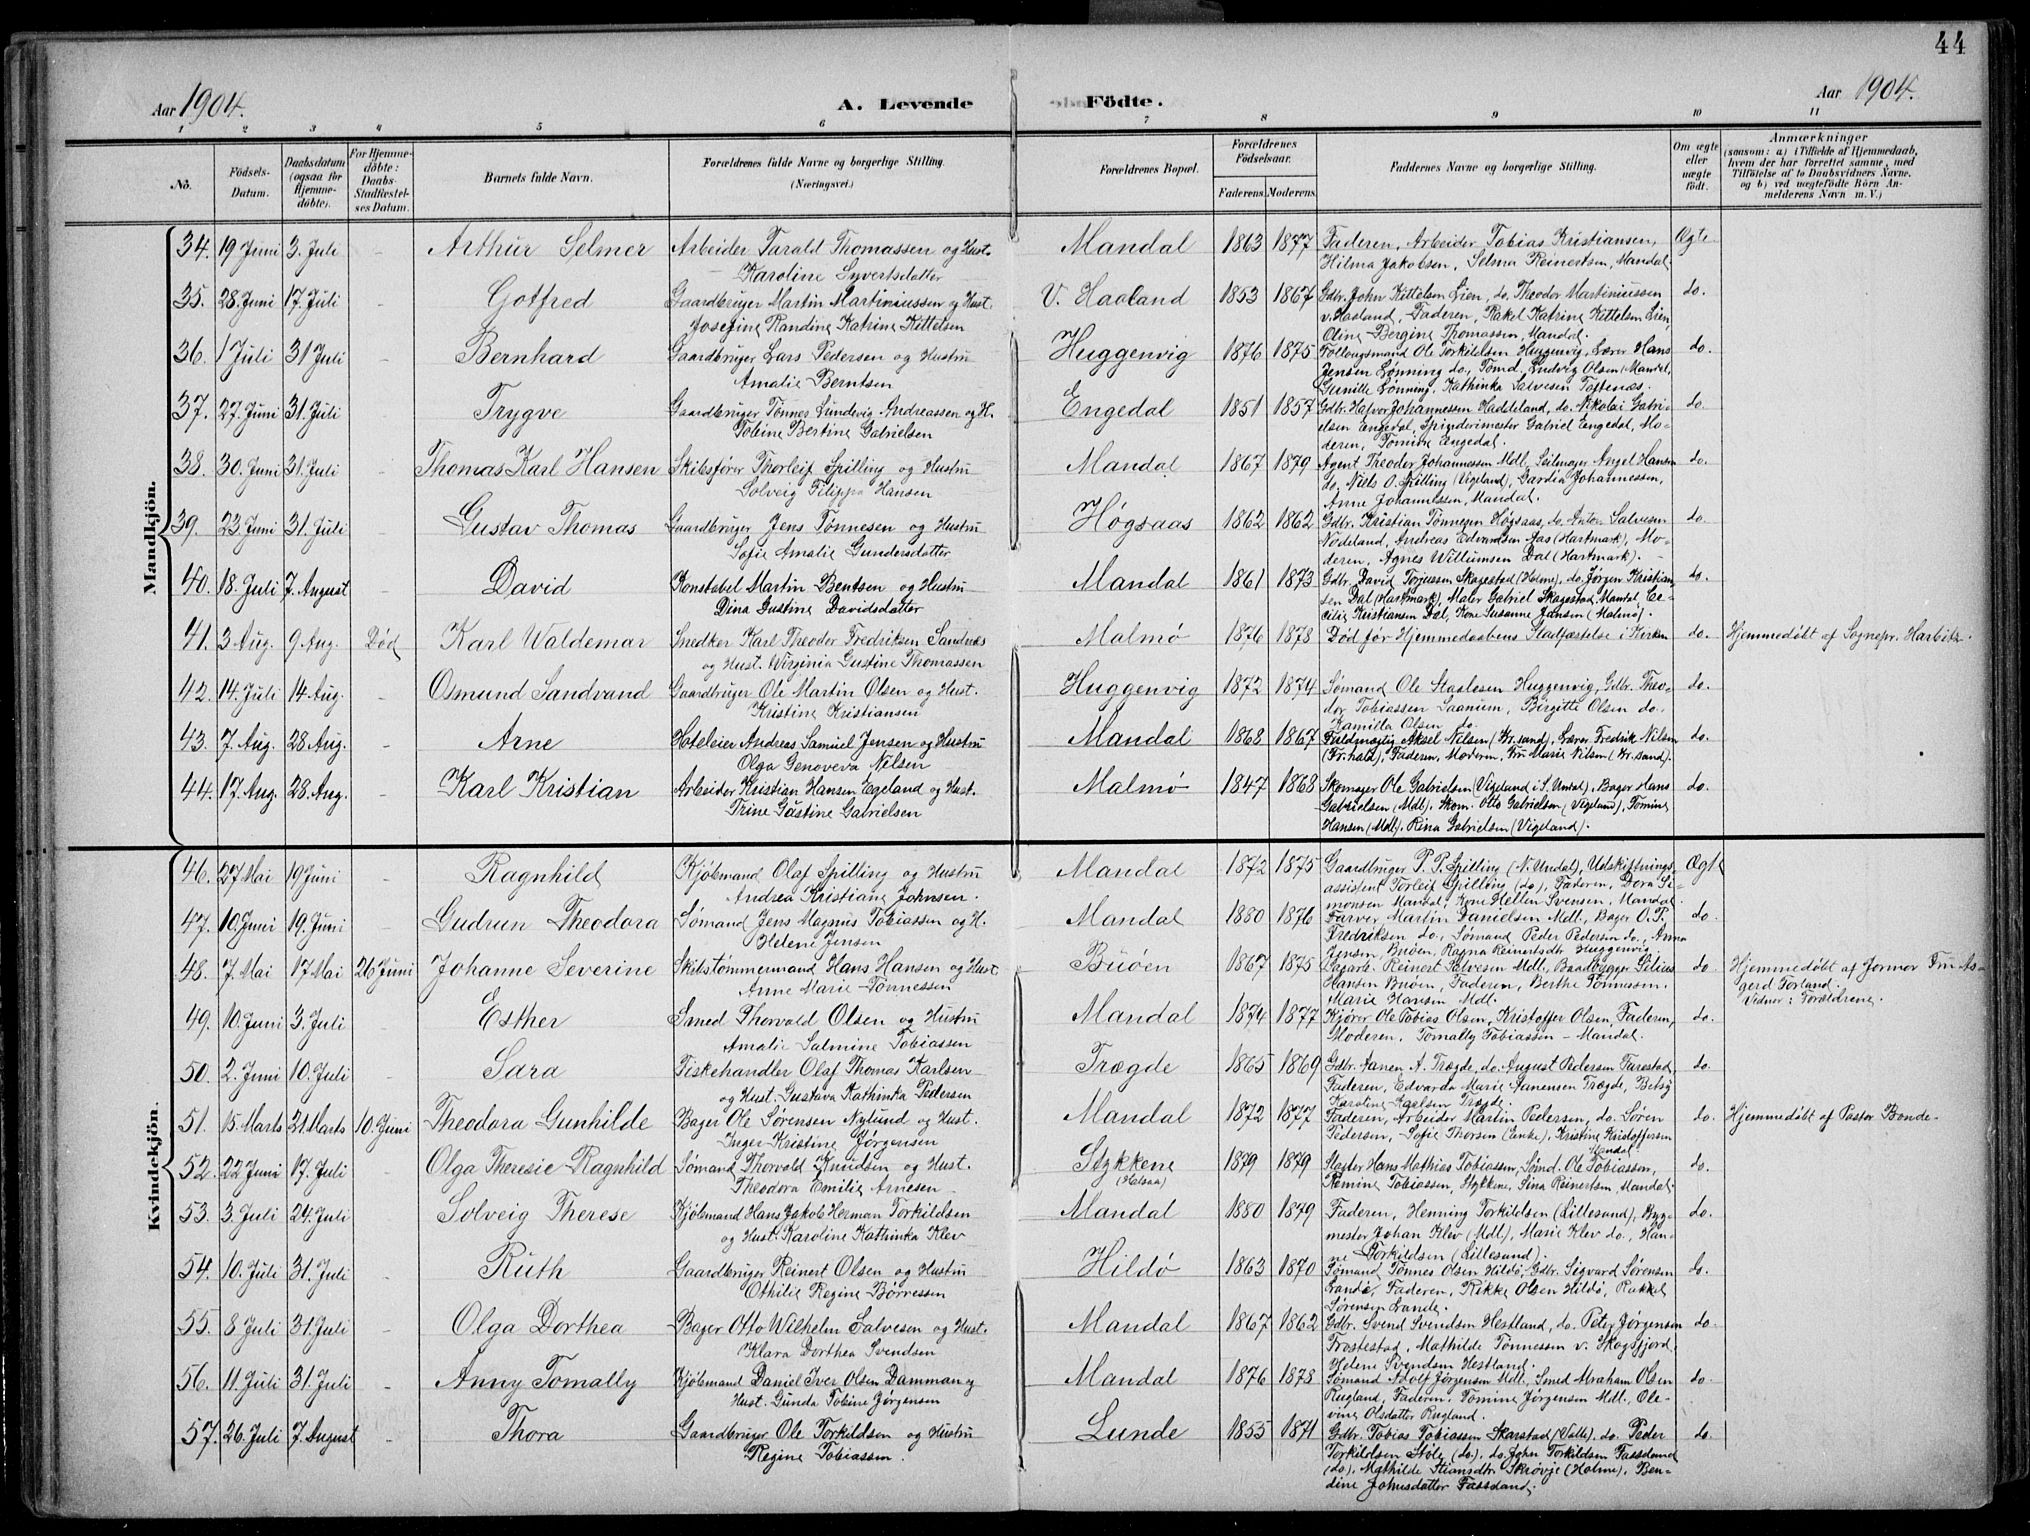 44
Aar 1904.
A. Levende Födte.
Aar 1904.
1 2 3 4 5 6 7 8 9 10 11
No.
Födsels-Datum.
Daabsdatum (ogsaa for Hjemme-döbte).
For Hjemme-döbte: Daabs-Stadfæstel-ses Datum.
Barnets fulde Navn.
Forældrenes fulde Navne og borgerlige Stilling. (Næringsvei.)
Forældrenes Bopæl.
Forældrenes Födselsaar.
Faderens. Moderens.
Faddernes Navne og borgerlige Stilling.
Om ægte eller uægte födt.
Anmærkninger
(saasom: a) i Tilfælde af Hjemmedaab,
hvem der har forrettet samme, med
Tilföielse af to Daabsvidners Navne.
og b) ved uægtefödte Börn An-
melderens Navn m. V.)
Mandkjön.
34. 19 Juni 3. Juli - Arthur Selmer Arbeider Tarald Thomassen og Hust. Mandal 1863 1877 Faderen, Arbeider Tobias Kristiansen, Ægte
Karoline Syvertsdatter Hilma Jakobsen, Selma Reinertsen, Mandal
35. 28. Juni 17. Juli - Gotfred Gaardbruger Martin Martiniussen og Hust. V. Haaland 1853 1867 Gdbr. John Kittelsen Lien, do. Theodor Martiniussen do.
Josefine Randine Katrine Kittelsen v. Haaland, Faderen, Rakel Katrine Kittelsen Lien,
Oline Bergine Thomassen, Mandal.
36. 1 Juli 31 Juli - Bernhard Gaardbruger Lars Pedersen og Hustru Huggenvig 1876 1875 Ole Torkildsen Huggenvig, Lærer Hans do.
Amalie Berntsen Jensen Lønning do., Tømd. Ludvig Olsen (Mandal,
Gunille Lønning, Kathinka Salvesen Toftenæs.
37. 27. Juni 31. Juli - Trygve Gaardbruger Tønnes Lundevig Andreassen og H. Engedal 1851 1857 Gdbr. Halvor Johannessen Haddeland, do. Nikolai Gabri- do.
Tobine Bertine Gabrielsen elsen Engedal, Spinderimester Gabriel Engedal, Mo-
deren, Tomine Engedal.
38. 30. Juni 31. Juli - Thomas Karl Hansen Skibsfører Thorleif Spilling og Hustru Mandal 1867 1879 Agent Theodor Johannessen Mdl, Seilmager Hansen do.
Solveig Filippa Hansen do, Niels O. Spilling (Vigeland), Gardia Johannessen,
Anne Johannessen, Mandal.
39. 23. Juni 31. Juli - Gustav Thomas Gaardbruger Jens Tønnesen og Hustru Høgsaas 1862 1862 Gdbr. Kristian Tønnesen Høgsaas, do. Anton Salvesen do.
Sofie Amalie Gundersdatter Nødeland, Andreas Edvardsen Aas (Hartmark), Mo-
deren, Agnes Willumsen Dal (Hartmark).
40. 18. Juli 7. August - David Konstabel Martin Bentsen og Hustru Mandal 1861 1873 Gdbr. David Torjussen Skagestad (Holme), do. Jørgen Kristian- do.
Dina Gustine Davidsdatter sen Dal (Hartmark), Maler Gabriel Skagestad, Mandal, Ce-
cilie Kristiansen Dal, Kone Susanne Jansen (Malmø).
41. 3 Aug. 9 Aug. Død Karl Waldemar Snedker Karl Theodor Fredriksen Sandnæs Malmø 1876 1878 Død før Hjemmedaabens Stadfæstelse i Kirken do. Hjemmedøbt af Sognepr. Harbitz.
og Hust. Virginia Gustine Thomassen
42. 14. Juli 14 Aug. - Osmund Sandvand Gaardbruger Ole Martin Olsen og Hust. Huggenvig 1872 1874 Sømand Ole Staalesen Huggenvig, Gdbr. Theo- do.
Kristine Kristiansen dor Tobiassen Saanum, Birgitte Olsen do.
Kamilla Olsen do.
43. 7. Aug. 28 Aug. - Arne Hoteleier Andreas Samuel Jensen og Hustru Mandal 1868 1867 Fuldmægtig Aksel Nilsen (Kr.sand), Lærer Fredrik Nilsen do.
Olga Genoveva Nilsen (Fr.hald), Faderen, Moderen, Fru Marie Nilsen (Kr.sand).
44. 17. Aug. 28 Aug. - Karl Kristian Arbeider Kristian Hansen Egeland og Hust. Malmø 1847 1868 Skomager Ole Gabrielsen (Vigeland i S. Undal), Bager Hans do.
Trine Gustine Gabrielsen Gabrielsen (Mdl), Skom. Otto Gabrielsen (Vigeland), Tomine
Hansen (Mdl), Rina Gabrielsen (Vigeland).
Kvindekjön.
46. 27 Mai 19 Juni - Ragnhild Kjøbmand Olaf Spilling og Hustru Mandal 1872 1875 Gaardbruger P. P. Spilling (N. Undal), Udskiftnings- Ægte
Andrea Kristiane Johnsen. assistent Torleif Spilling (do), Faderen, Dora Si-
monsen Mandal, Kone Hellen Svensen, Mandal.
47. 10. Juni 19. Juni - Gudrun Theodora Sømand Jens Magnus Tobiassen og H. Mandal 1880 1876 Farver Martin Danielsen Mdl., Bager O. T. do.
Helene Jensen Fredriksen do, Sømand Peder Pedersen do, Anna
Jensen, Buøen, Ragna Reinertsdtr. Huggenvig.
48. 7 Mai 17 Mai 26 Juni Johanne Severine Skibstømmermand Hans Hansen og Hust Buøen 1867 1875 Reinert Salvesen Mdl., Baadbygger Silius do. Hjemmedøbt af Jormor Fru As-
Anne Marie Tønnessen Hansen Buøen, Faderen, Berthe Tønnessen, gerd Torland.
Marie Hansen Mdl. Vidner: Forældrene.
49. 10. Juni 3. Juli - Esther Smed Thorvald Olsen og Hustru Mandal 1874 1877 Kjører Ole Tobias Olsen, Kristoffer Olsen, Faderen, do.
Amalie Salmine Tobiassen Moderen, Tomally Tobiassen - Mandal.
50. 2. Juni 10. Juli - Sara Fiskehandler Olaf Thomas Karlsen Trægde 1865 1869 Gdbr. Aanen A. Trægde, do. August Pedersen Farestad, do.
og Hust. Gustava Kathinka Pedersen Faderen, Edvarda Marie Aanensen Trægde, Betsy
Karoline Trægde.
51. 15. Marts 21. Marts 10. Juni Theodora Gunhilde Bager Ole Sørensen Nylund og Hust. Mandal 1872 1877 Faderen, Arbeider Martin Pedersen, do. Søren do. Hjemmedøbt af Pastor Bonde.
Inger Kristine Jørgensen Pedersen, Sofie Thorsen (Enke), Kristine Kristoffersen
Mandal
52. 22 Juni 17. Juli - Olga Theresie Ragnhild Sømand Thorvald Knudsen og Hust. Stykkene 1879 1879 Slagter Hans Mathias Tobiassen, Sømd. Ole Tobiassen, do.
Theodora Emilie Arnesen (Halsaa) Remine Tobiassen, Stykkene, Sina Reinertsen, Mandal.
53. 3. Juli 24. Juli - Solveig Therese Kjøbmand Hans Jakob Herman Torkildsen Mandal 1880 1879 Faderen, Henning Torkildsen (Lillesand), Byg- do.
og Hust. Karoline Kathinka Klev mester Johan Klev (Mdl), Marie Klev do., Han-
ne Torkildsen (Lillesand).
54. 10. Juli 31. Juli - Ruth Gaardbruger Reinert Olsen og Hustru Hildø 1863 1870 Sømand Tønnes Olsen Hildø, Gdbr. Sigvard Sørensen do.
Othilie Regine Børressen Lande, Faderen, Rikke Olsen Hildø, Rakkel
Sørensen Lande.
55. 8 Juli 31. Juli - Olga Dorthea Bager Otto Wilhelm Salvesen og Hust. Mandal 1867 1862 Gdbr. Svend Svendsen Hestland, do. Peter Jørgensen do.
Klara Dorthea Svendsen Frostestad, Mathilde Tønnessen v. Skogsfjord,
Helene Svendsen Hestland.
56. 11. Juli 31. Juli - Anny Tomally Kjøbmand Daniel Iver Olsen Damman og Mandal 1876 1878 Sømand Adolf Jørgensen Mdl, Smed Abraham Olsen do.
Hust. Gunda Tobine Jørgensen Rugland, Faderen, Tomine Jørgensen Mdl. Ole-
vine Olsdatter Rugland.
57. 26. Juli 7. August - Thora Gaardbruger Ole Torkildsen og Hustru Lunde 1855 1871 Gdbr. Tobias Tobiassen Skarstad (Valle), do. Peder do.
Regine Tobiassen. Torkildsen Støle (do), do. John Torkildsen Fassland
(do), Mathilde Stiansdtr. Skrøvje (Holme), Ben-
dine Johnsdatter Fassland.